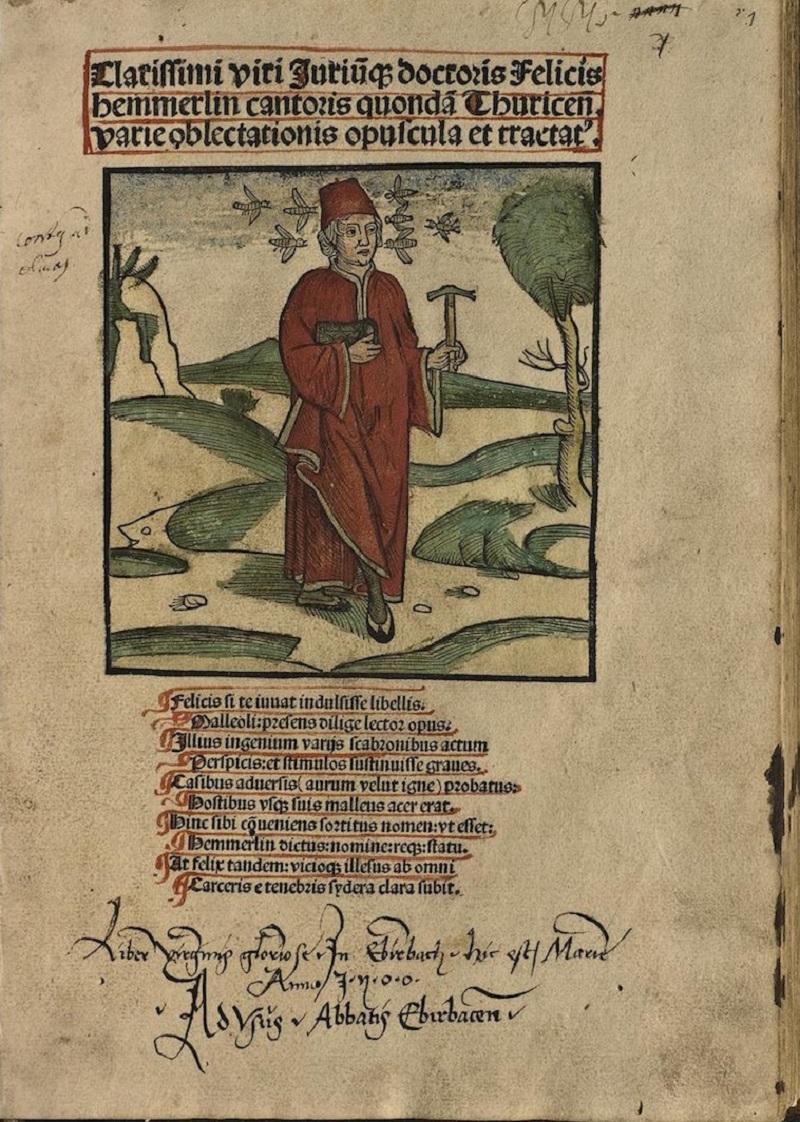 Clarissimi viri Juriūq doctoris Felicis
hemmerlin cantoris quondā Thuriceñ.
varie oblectationis opuscula et tractatꝰ.
Felicis si te iuuat indulsisse libellis:
Malleoli: presens dilige lector opus:
Illius ingenium varijs scabronibus actum
Perspicis: et stimulos sustinuisse graues.
Casibus aduersis (aurum velut igne) probatus:
Hostibus vsqꝫ suis malleus acer erat.
Hinc sibi cōueniens sortitus nomen: vt esset:
Hemmerlin dictus: nomine: reqꝫ: statu.
At felix tandem: vicioqꝫ illesus ab omni
Carceris e tenebris sydera clara subit.
Liber virginis gloriose In Ebirbach hic est Marie
Anno 1500
Ad Vsus Abbatis Ebirbaceñ